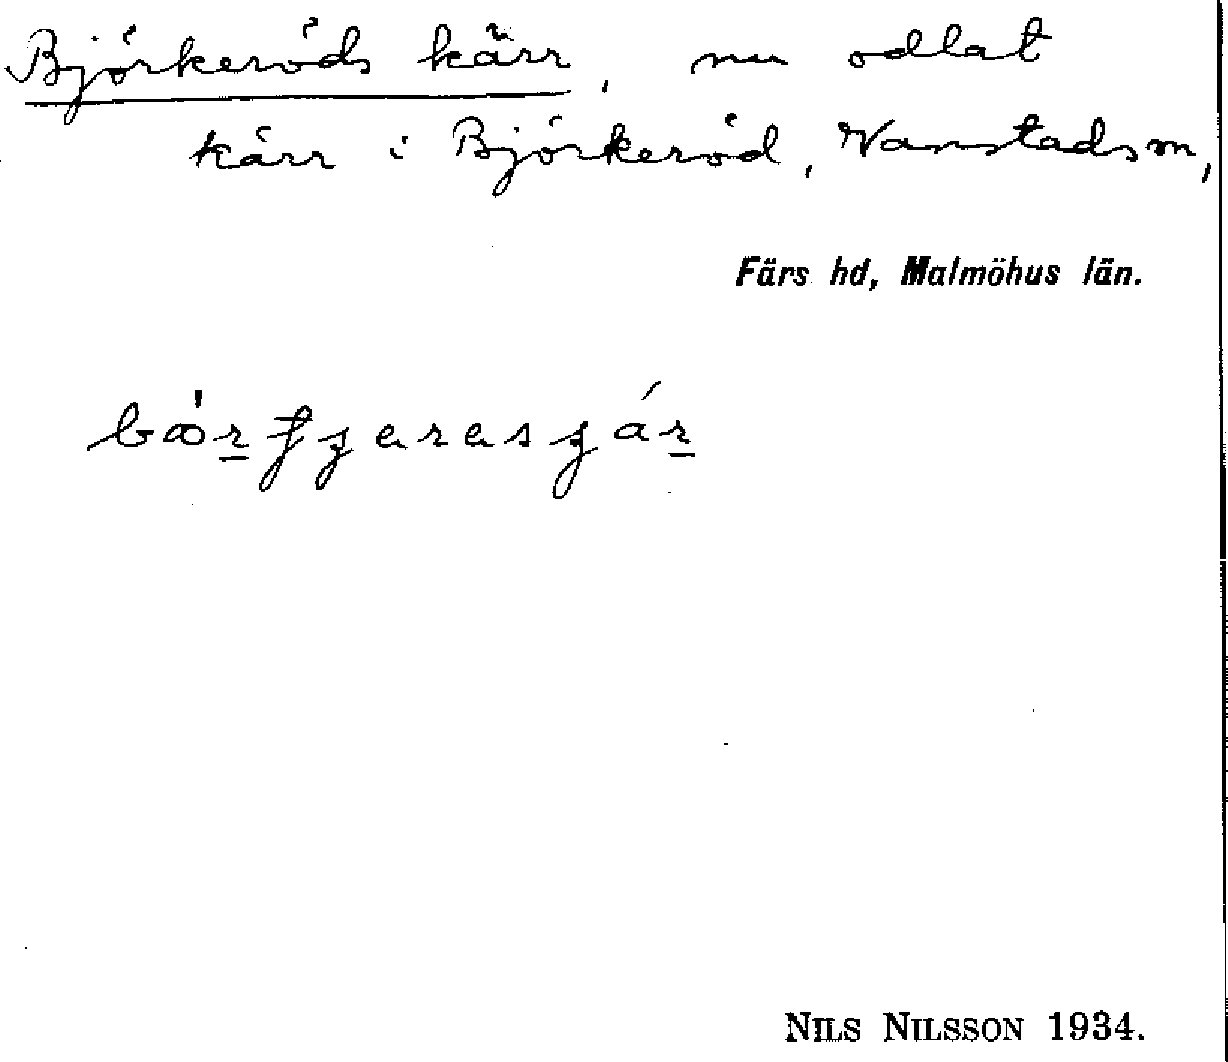 Björkeröds kärr, nu odlat
kärr i Björkeröd, Wanstadsm,
Färs hd, Malmöhus län.
NILS NILSSON 1934.